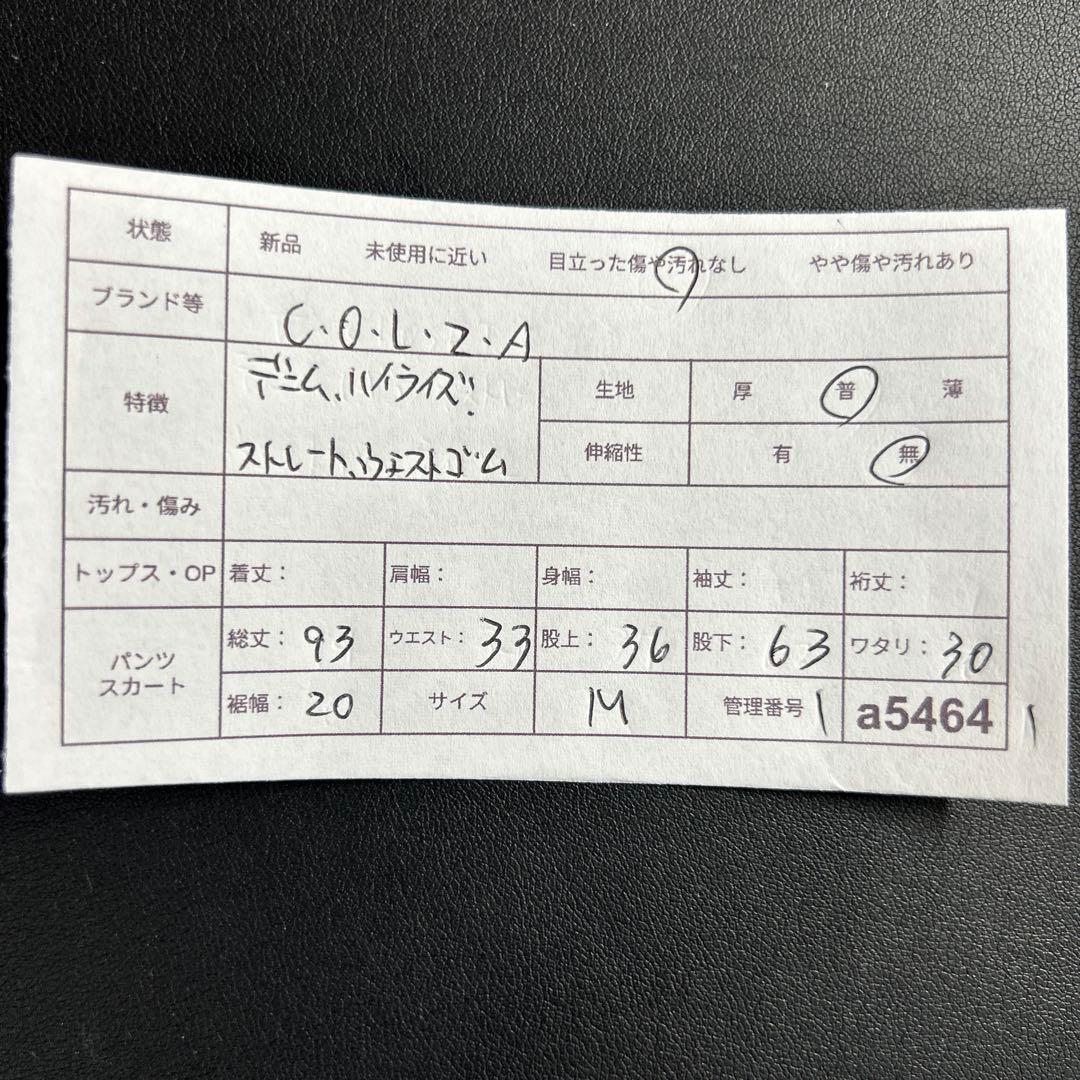 状態 新品 未使用に近い 目立った傷や汚れなし やや傷や汚れあり
ブランド等 C・O・L・Z・A
特徴 デニム、ハイライズ、
ストレート、ウエストゴム
生地 厚 普 薄
伸縮性 有 無
汚れ・傷み
トップス・OP 着丈： 肩幅： 身幅： 袖丈： 裄丈：
パンツ
スカート
総丈：93 ウエスト：33 股上：36 股下：63 ワタリ：30
裾幅：20 サイズ M 管理番号 1 a5464 1